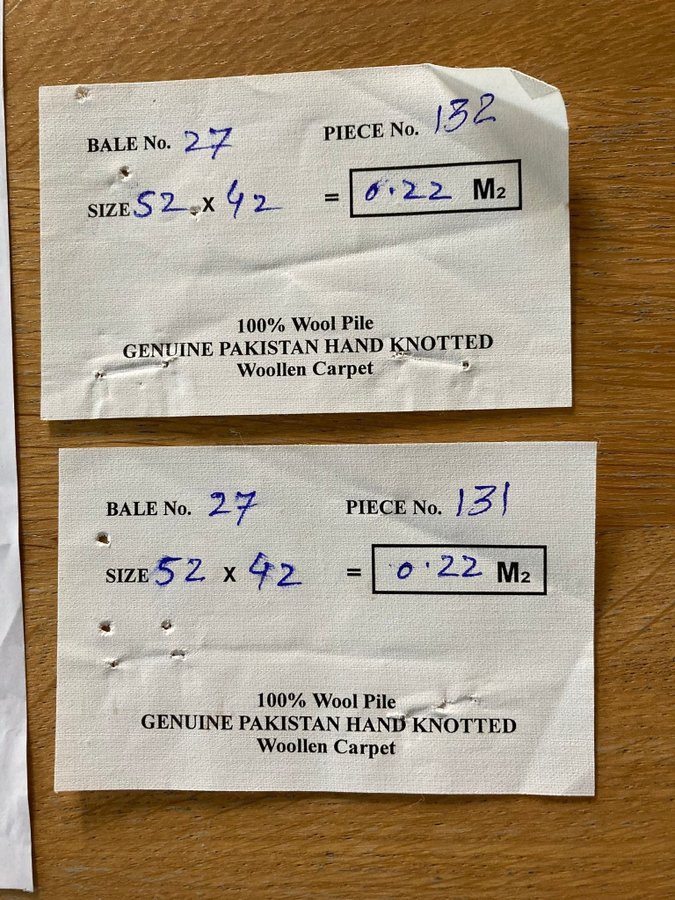 BALE No. 27 PIECE No. 132
SIZE 52 x 42 = 0.22 M2
100% Wool Pile
GENUINE PAKISTAN HAND KNOTTED
Woollen Carpet
BALE No. 27 PIECE No. 131
SIZE 52 x 42 = 0.22 M2
100% Wool Pile
GENUINE PAKISTAN HAND KNOTTED
Woollen Carpet